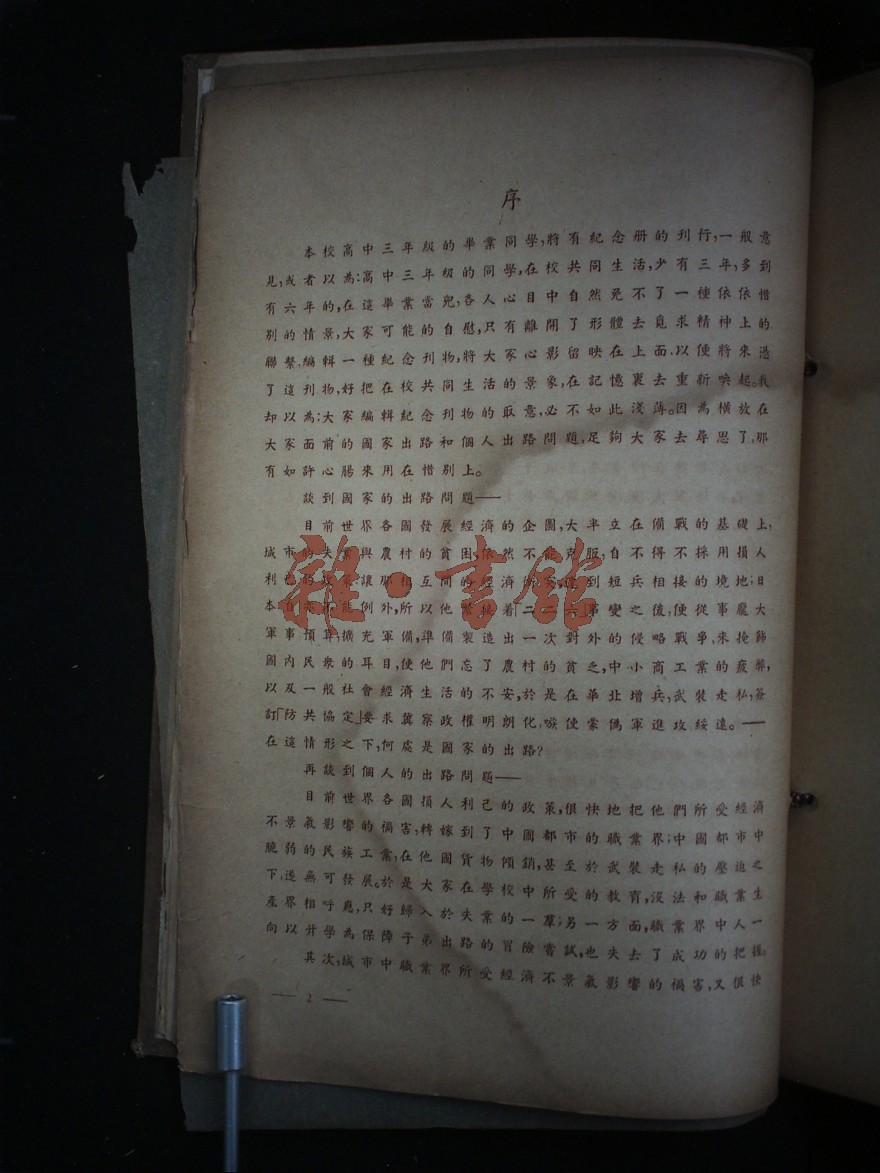 序
本校高中三年級的畢業同學,將有紀念册的刊行,一般意
見,或者以為:高中三年級的同學,在校共同生活,少有三年,多到
有六年的,在這畢業當兒,各人心目中自然免不了一種依依惜
别的情景,大家可能的自慰,只有離開了形體去覓求精神上的
聯繫,編輯一種紀念刊物,將大家心影留映在上面,以便將來憑
了這刊物,好把在校共同生活的景象,在記憶裏去重新喚起。我
却以為:大家編輯紀念刊物的取意,必不如此淺薄。因為橫放在
大家面前的國家出路和個人出路問題,足夠大家去尋思了,那
有如許心腸來用在惜別上。
談到國家的出路問題——
目前世界各國發展經濟的企圖,大半立在備戰的基礎上,
城市的失業與農村的貧困,依然不能克服,自不得不採用損人
利己的政策:讓那相互間的經濟 到短兵相接的境地;日
本自亦不能例外,所以他緊接着「二二六」事變之後,便從事龐大
軍事預算,擴充軍備,準備製造出一次對外的侵略戰爭,來掩飾
國內民衆的耳目,使他們忘了農村的貧乏,中小商工業的疲弊,
以及一般社會經濟生活的不安,於是在華北增兵,武裝走私,簽
訂「防共協定」要求冀察政權明朗化,嗾使蒙偽軍進攻綏遠。——
在這情形之下,何處是國家的出路?
再談到個人的出路問題——
目前世界各國損人利己的政策,很快地把他們所受經濟
不景氣影響的禍害,轉嫁到了中國都市的職業界;中國都市中
脆弱的民族工業,在他國貨物傾銷,甚至於武裝走私的壓迫之
下,遂無可發展。於是大家在學校中所受的教育,沒法和職業生
產界相呼應,只好歸入於失業的一羣;另一方面,職業界中人一
向以升學為保障子弟出路的冒險嘗試,也失去了成功的把握。
其次,城市中職業界所受經濟不景氣影響的禍害,又很快
— 2 —
雜·書館